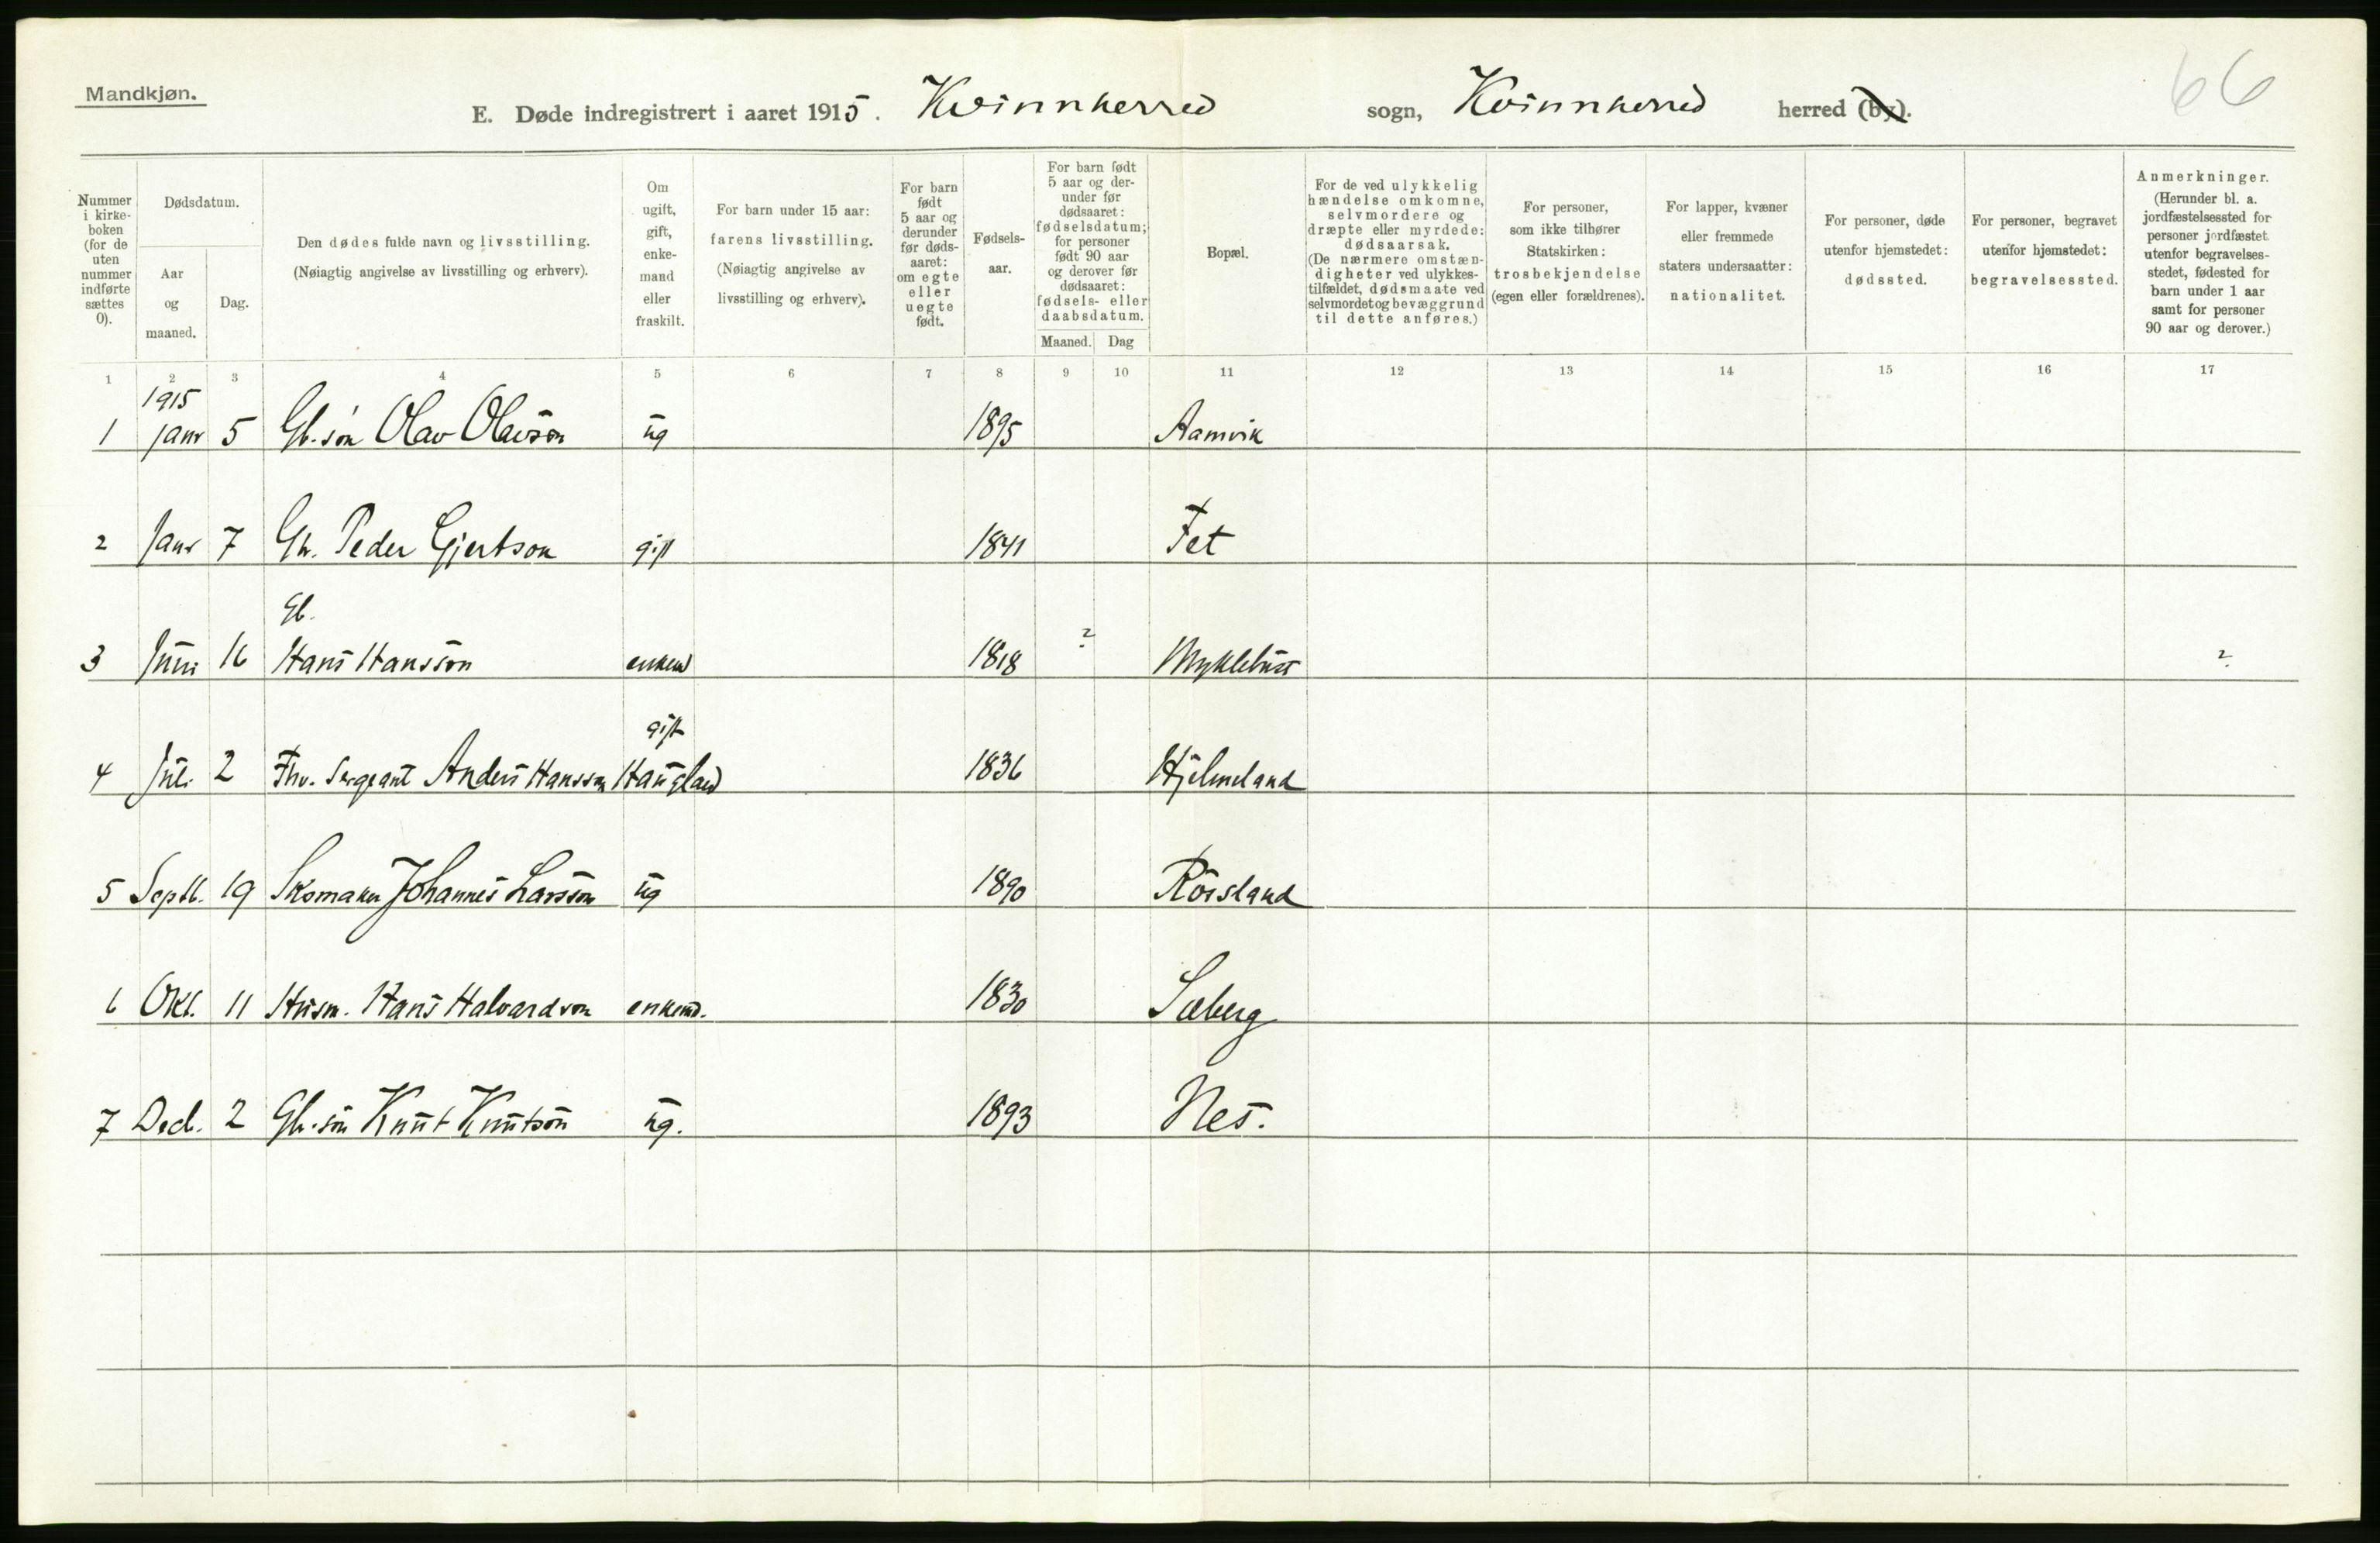 Mandkjøn.
66
E. Døde indregistrert i aaret 1915. Kvinnherred sogn, Kvinnherred herred (by).
Nummer i kirke-boken (for de uten nummer indførte sættes 0).
Dødsdatum.
Aar og maaned.
Dag.
Den dødes fulde navn og livsstilling.
(Nøiagtig angivelse av livsstilling og erhverv).
Om ugift, gift, enke-mand eller fraskilt.
For barn under 15 aar: farens livsstilling.
(Nøiagtig angivelse av livsstilling og erhverv).
For barn født 5 aar og derunder før døds-aaret: om egte eller uegte født.
Fødsels-aar.
For barn født 5 aar og der-under før dødsaaret: fødselsdatum; for personer født 90 aar og derover før dødsaaret: fødsels- eller daabsdatum.
Maaned.
Dag
Bopæl.
For de ved ulykkelig hændelse omkomne, selvmordere og dræpte eller myrdede: dødsaarsak.
(De nærmere omstæn-digheter ved ulykkes-tilfældet, dødsmaate ved selvmordet og bevæggrund til dette anføres.)
For personer, som ikke tilhører Statskirken: trosbekjendelse (egen eller forældrenes).
For lapper, kvæner eller fremmede staters undersaatter: nationalitet.
For personer, døde utenfor hjemstedet: dødssted.
For personer, begravet utenfor hjemstedet: begravelsessted.
Anmerkninger.
(Herunder bl. a. jordfæstelsessted for personer jordfæstet utenfor begravelses-stedet, fødested for barn under 1 aar samt for personer 90 aar og derover.)
1 2 3 4 5 6 7 8 9 10 11 12 13 14 15 16 17
1915
1 Janr 5 Gb. søn Olav Olavson ug 1895 Aamvik
2 Janr 7 Gb. Peder Gjertson gift 1841 Fet
Gb.
3 Juni 16 Hans Hansson enkem 1818 ? Myklebust ?
gift
4 Juli 2 Fhv. Sergeant Anders Hansson Haugland 1836 Hjelmeland
5 Septb. 19 Skomaker Johannes Larsson ug 1890 Røisland
6 Okt. 11 Husm. Hans Halvardson enkem. 1830 Sæberg
7 Decb. 2 Gb. søn Knut Knutson ug. 1893 Nes.